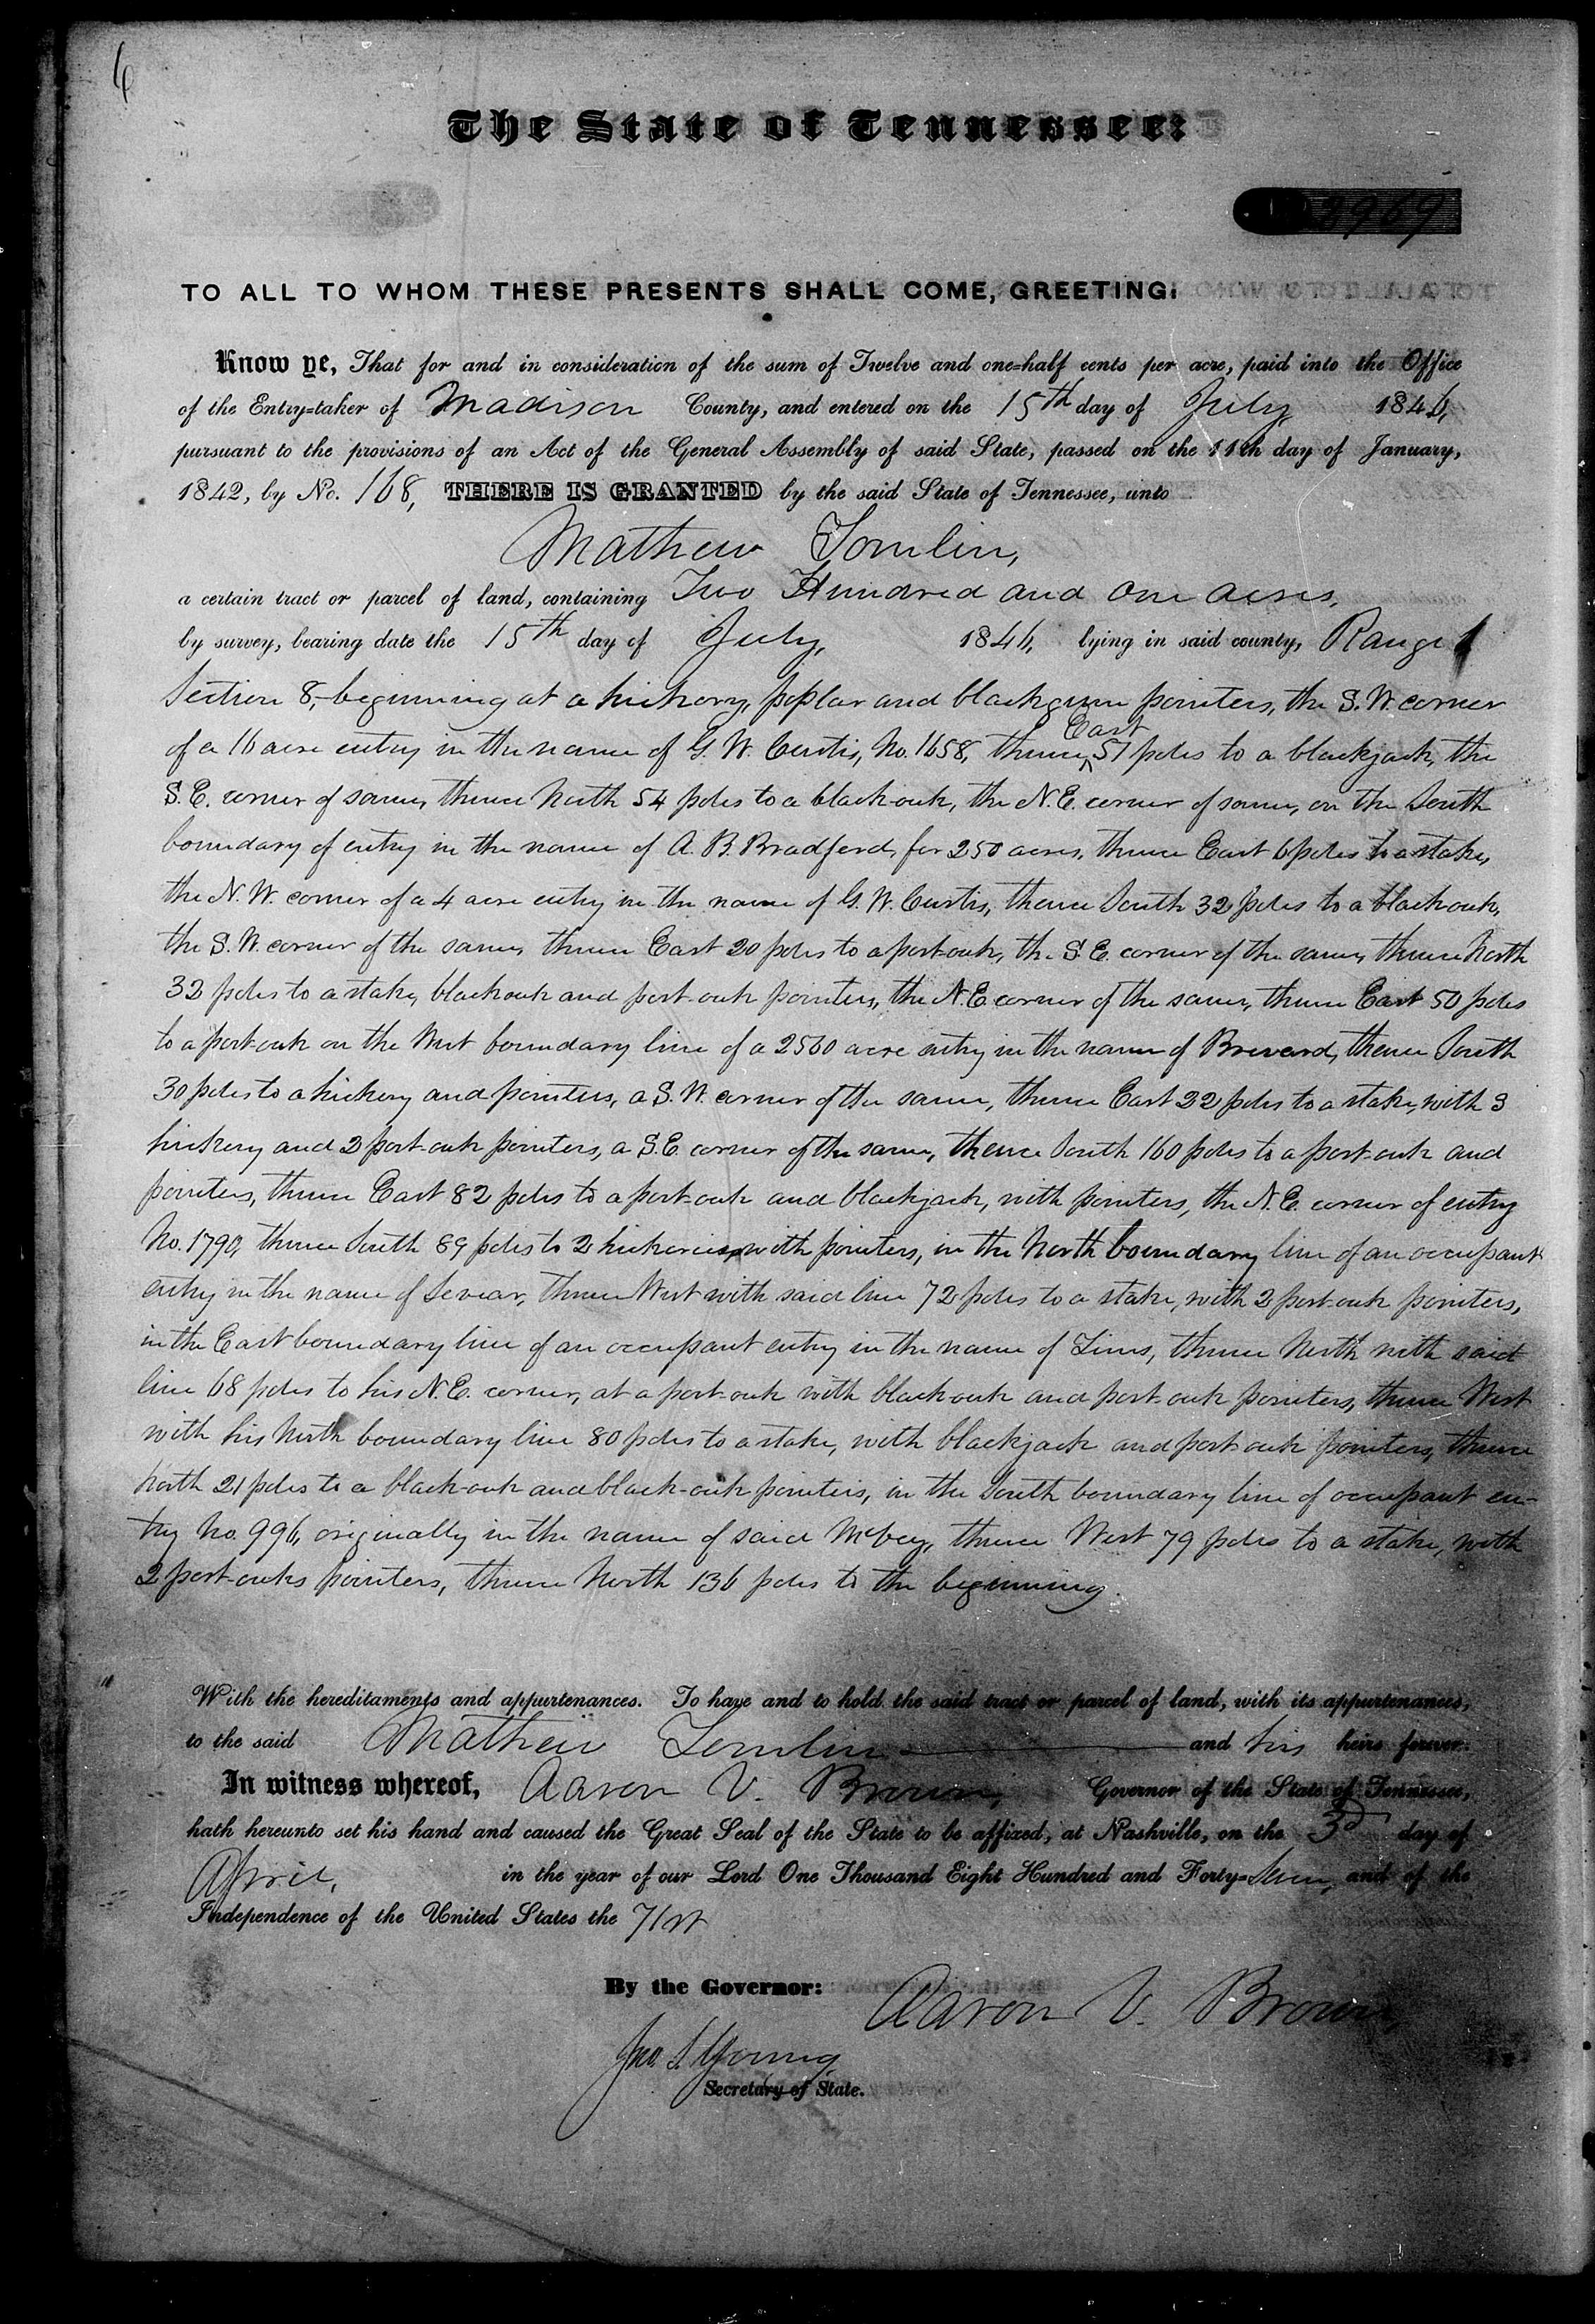 6
The State of Tennessee:
No. 3969
TO ALL TO WHOM THESE PRESENTS SHALL COME, GREETING:
Know ye, That for and in consideration of the sum of Twelve and one-half cents per acre, paid into the Office
of the Entry-taker of Madison County, and entered on the 15th day of July, 1846,
pursuant to the provisions of an Act of the General Assembly of said State, passed on the 11th day of January,
1842, by No. 168, THERE IS GRANTED by the said State of Tennessee, unto
Mathew Tomlin,
a certain tract or parcel of land, containing Two Hundred and one acres,
by survey, bearing date the 15th day of July, 1846, lying in said county, Range 1
Section 8, beginning at a hickory, poplar and blackgum pointers, the S.W. corner
of a 16 acre entry in the name of G. W. Curtis, No. 1658, thence East 51 poles to a blackjack, the
S.E. corner of same, thence North 54 poles to a black-oak, the N.E. corner of same, on the South
boundary of entry in the name of A. B. Bradford, for 250 acres, thence East 6 poles to a stake,
the N.W. corner of a 4 acre entry in the name of G. W. Curtis, thence South 32 poles to a black oak,
the S.W. corner of the same, thence East 20 poles to a post-oak, the S.E. corner of the same, thence North
32 poles to a stake, black oak and post-oak pointers, the N.E. corner of the same, thence East 50 poles
to a post-oak on the West boundary line of a 2560 acre entry in the name of Brevard, thence South
30 poles to a hickory and pointers, a S.W. corner of the same, thence East 22 poles to a stake, with 3
hickory and 2 post-oak pointers, a S.E. corner of the same, thence South 160 poles to a post-oak and
pointers, thence East 82 poles to a post-oak and blackjack, with pointers, the N.E. corner of entry
No. 1790, thence South 89 poles to 2 hickories, with pointers, in the North boundary line of an occupant
entry in the name of Sevear, thence West with said line 72 poles to a stake, with 2 post-oak pointers,
in the East boundary line of an occupant entry in the name of Sims, thence North with said
line 68 poles to his N.E. corner, at a post-oak with black oak and post-oak pointers, thence West
with his North boundary line 80 poles to a stake, with blackjack and post-oak pointers, thence
North 21 poles to a black-oak and black-oak pointers, in the South boundary line of occupant en-
try No. 996, originally in the name of said thence West 79 poles to a stake, with
2 post-oaks pointers, thence North 136 poles to the beginning.
With the hereditaments and appurtenances. To have and to hold the said tract or parcel of land, with its appurtenances,
to the said Mathew Tomlin and his heirs forever.
In witness whereof, Aaron V. Brown, Governor of the State of Tennessee,
hath hereunto set his hand and caused the Great Seal of the State to be affixed, at Nashville, on the 3d day of
April, in the year of our Lord One Thousand Eight Hundred and Forty-Seven, and of the
Independence of the United States the 71st
By the Governor: Aaron V. Brown,
Jno. S. Young,
Secretary of State.